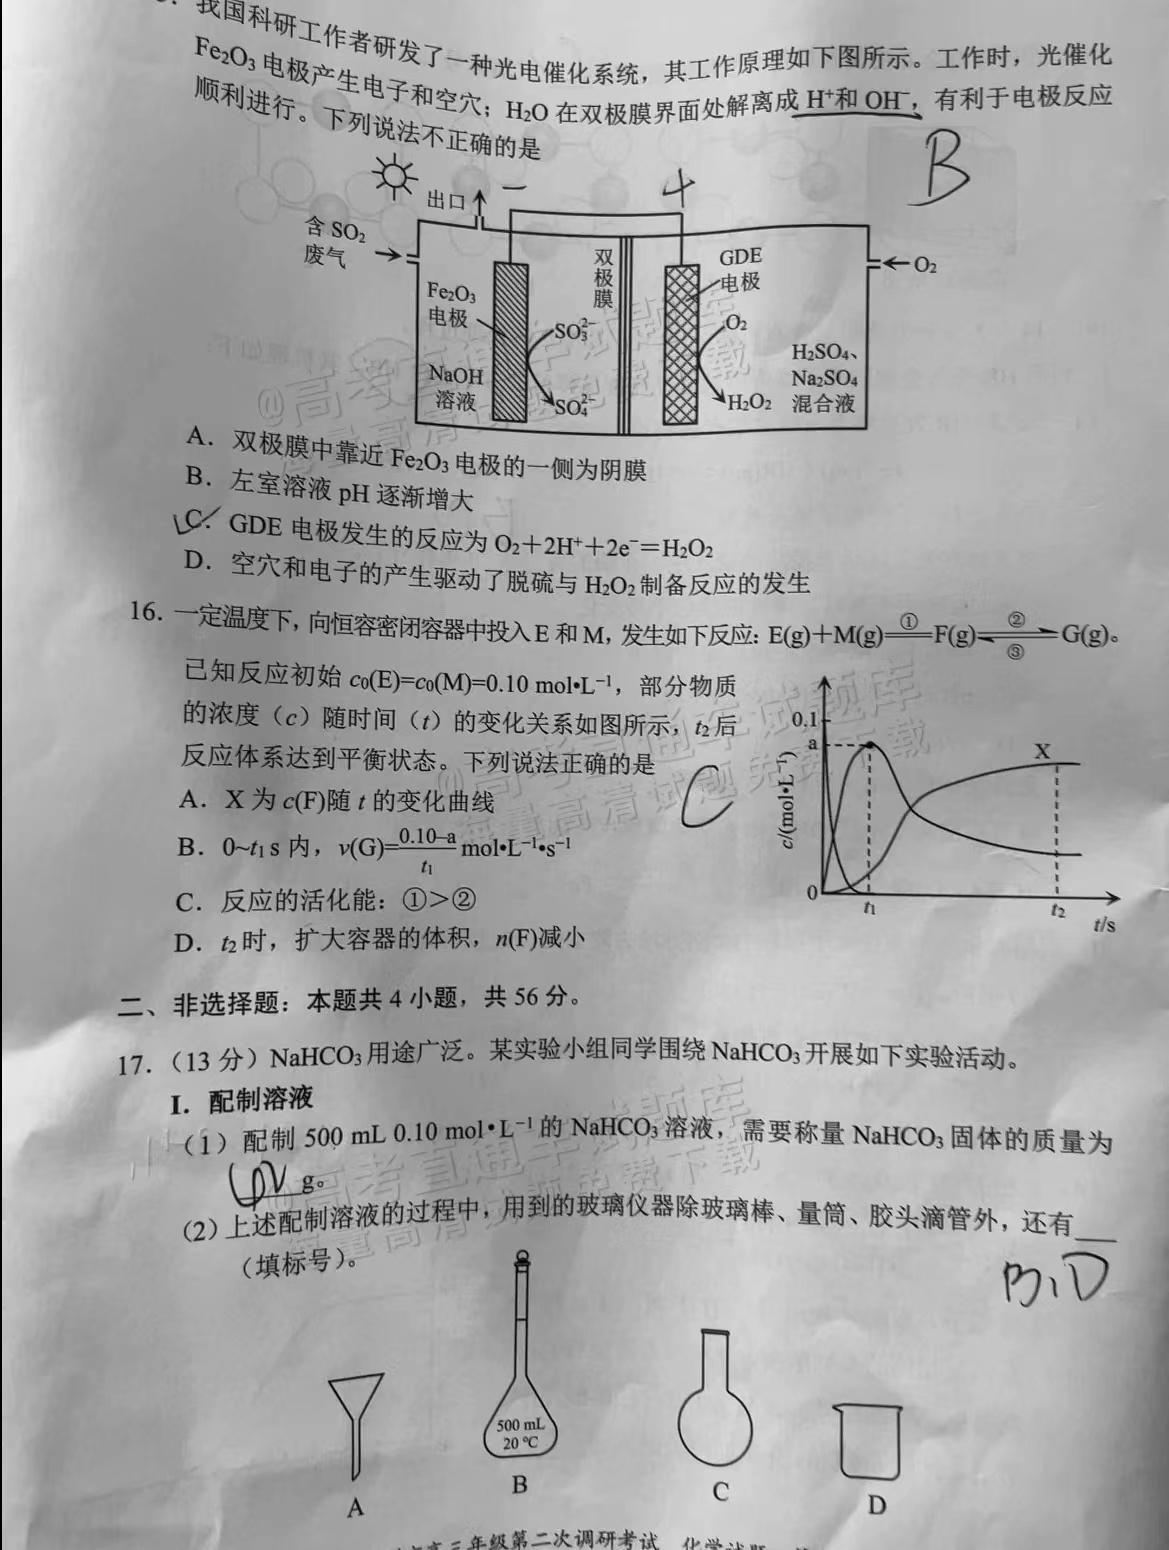 我国科研工作者研发了一种光电催化系统，其工作原理如下图所示。工作时，光催化
Fe₂O₃ 电极产生电子和空穴；H₂O 在双极膜界面处解离成 H⁺和 OH⁻，有利于电极反应
顺利进行。下列说法不正确的是
B
出口
－
＋
含 SO₂
废气
双极膜
GDE
电极
O₂
Fe₂O₃
电极
SO₃²⁻
O₂
NaOH
溶液
H₂SO₄、
Na₂SO₄
混合液
SO₄²⁻
H₂O₂
A．双极膜中靠近 Fe₂O₃ 电极的一侧为阴膜
B．左室溶液 pH 逐渐增大
C．GDE 电极发生的反应为 O₂＋2H⁺＋2e⁻＝H₂O₂
D．空穴和电子的产生驱动了脱硫与 H₂O₂ 制备反应的发生
16．一定温度下，向恒容密闭容器中投入 E 和 M，发生如下反应：E(g)＋M(g)①F(g)②③G(g)。
已知反应初始 c₀(E)=c₀(M)=0.10 mol•L⁻¹，部分物质
的浓度（c）随时间（t）的变化关系如图所示，t₂ 后
反应体系达到平衡状态。下列说法正确的是
C
A．X 为 c(F)随 t 的变化曲线
B．0~t₁ s 内，v(G)=(0.10−a)/t₁ mol•L⁻¹•s⁻¹
C．反应的活化能：①＞②
D．t₂ 时，扩大容器的体积，n(F)减小
c/(mol•L⁻¹)
0.1
a
X
0
t₁
t₂
t/s
二、非选择题：本题共 4 小题，共 56 分。
17．（13 分）NaHCO₃ 用途广泛。某实验小组同学围绕 NaHCO₃ 开展如下实验活动。
I．配制溶液
（1）配制 500 mL 0.10 mol•L⁻¹ 的 NaHCO₃ 溶液，需要称量 NaHCO₃ 固体的质量为
g。
（2）上述配制溶液的过程中，用到的玻璃仪器除玻璃棒、量筒、胶头滴管外，还有___
（填标号）。
B、D
500 mL
20 ℃
A
B
C
D
高三年级第二次调研考试 化学试题
@高考直通车试题库
海量高清试题免费下载
@高考直通车试题库
海量高清试题免费下载
@高考直通车试题库
海量高清试题免费下载